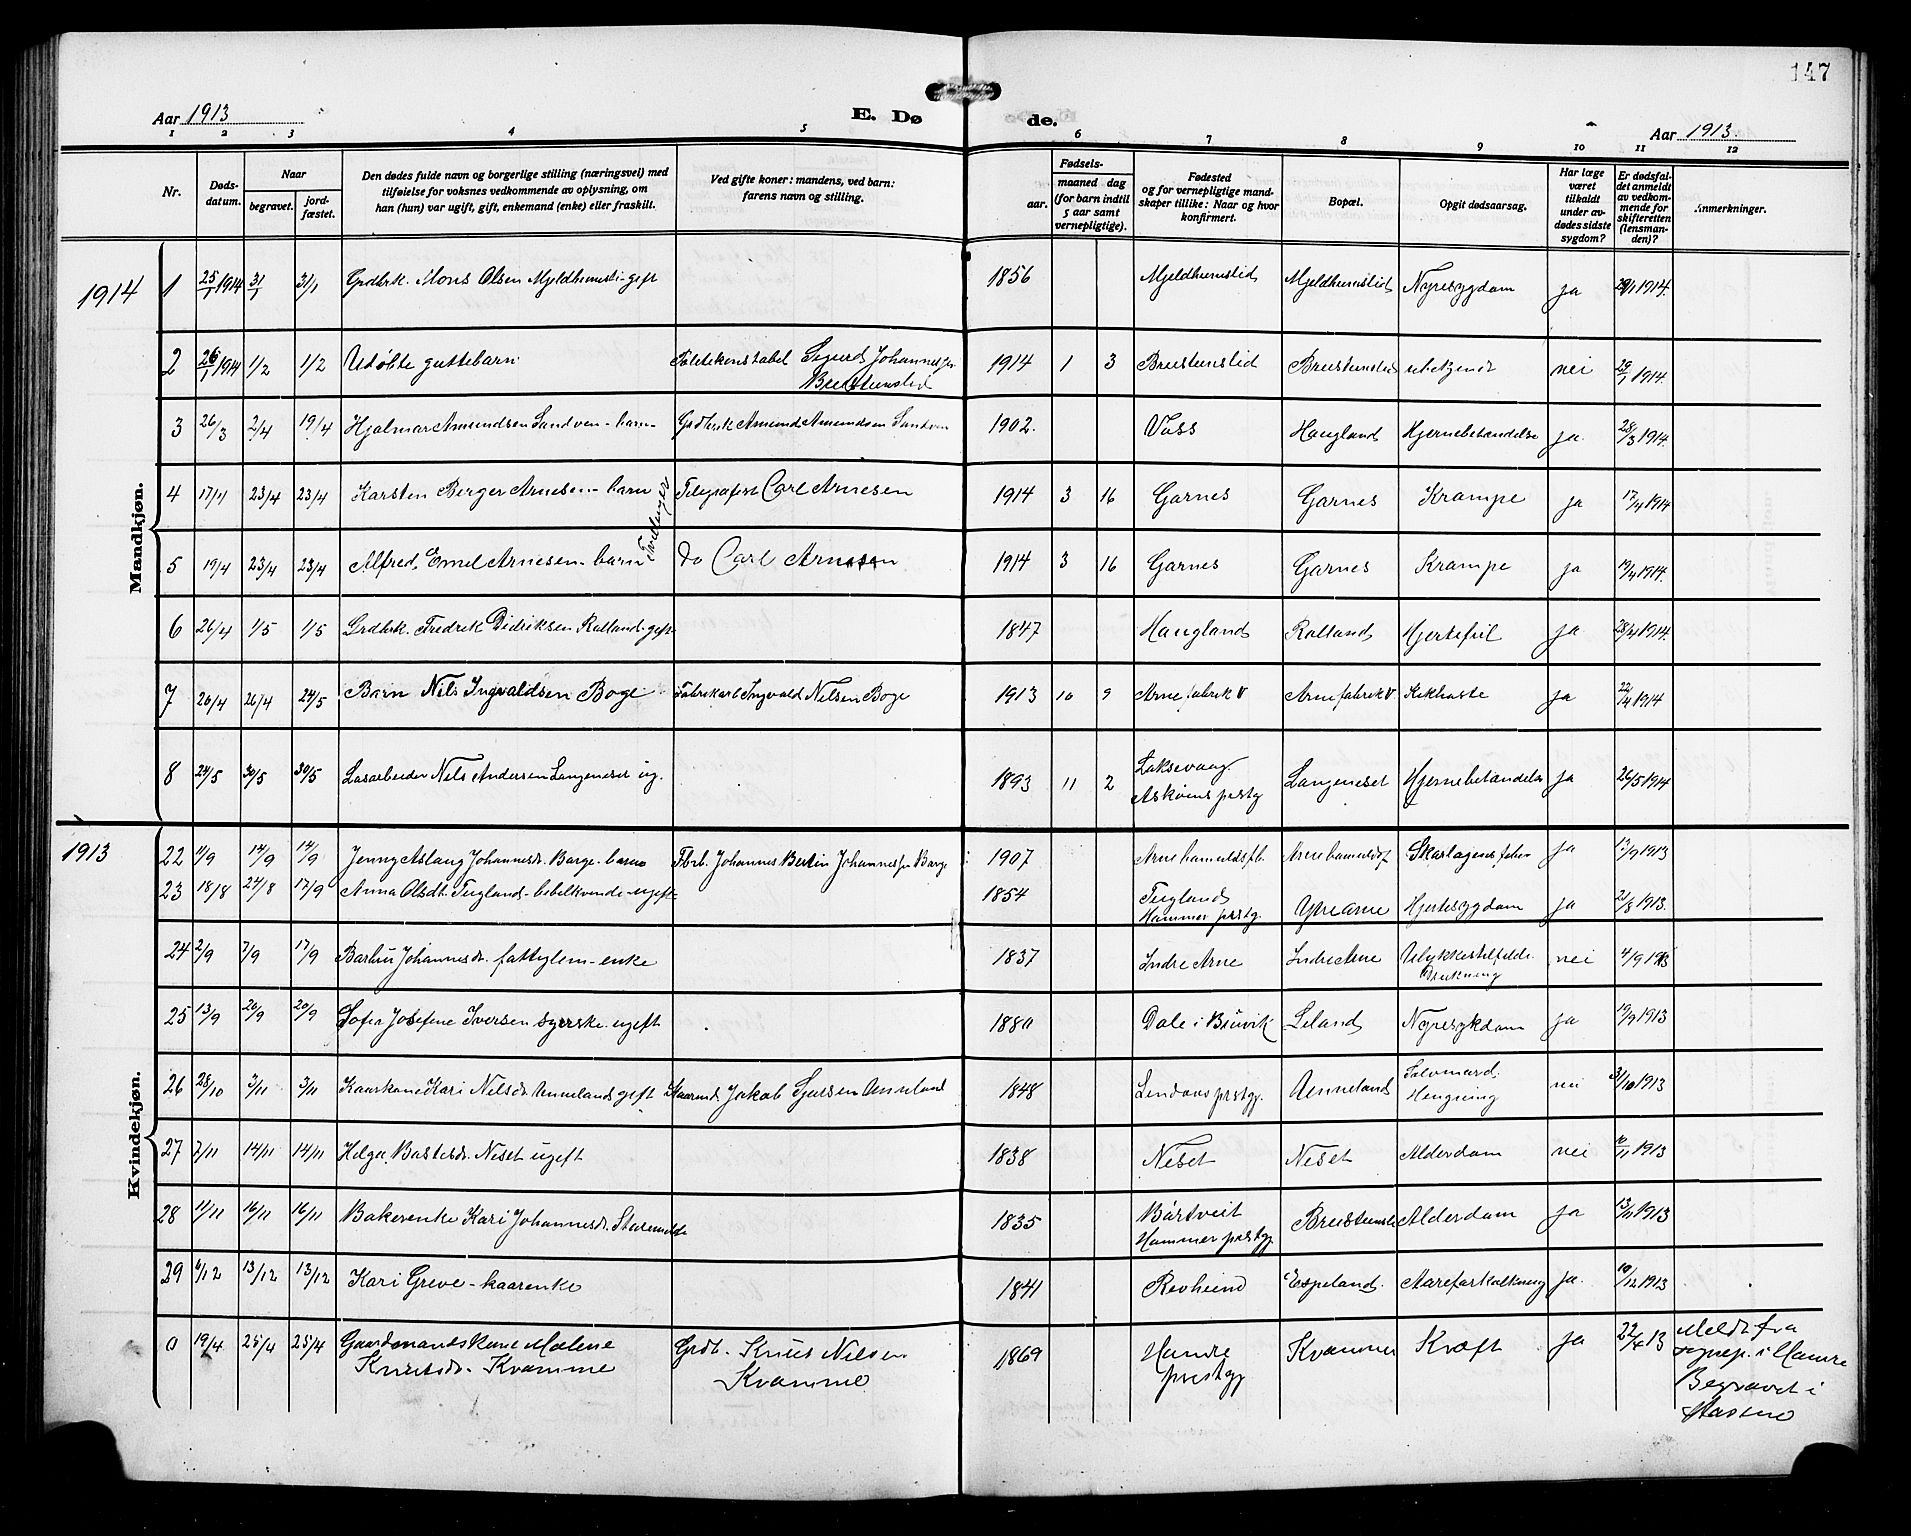 147
Aar 1913
E. Dø de.
Aar 1913.
1 2 3 4 5 6 7 8 9 10 11 12
Nr.
Døds-datum.
Naar
begravet. jord-fæstet.
Den dødes fulde navn og borgerlige stilling (næringsvei) med
tilføielse for voksnes vedkommende av oplysning, om
han (hun) var ugift, gift, enkemand (enke) eller fraskilt.
Ved gifte koner: mandens, ved barn:
farens navn og stilling.
Fødsels-
aar. maaned dag
(for barn indtil
5 aar samt
vernepligtige).
Fødested
og for vernepligtige mand-
skaper tillike: Naar og hvor
konfirmert.
Bopæl.
Opgit dødsaarsag.
Har læge
været
tilkaldt
under av-
dødes sidste
sygdom?
Er dødsfal-
det anmeldt
av vedkom-
mende for
skifteretten
(lensman-
den)?
Anmerkninger.
1914
Mandkjøn.
1 25/1 1914 31/1 31/1 Gndbrk. Mons Olsen Mjeldheimsli-gift 1856 Mjeldheimslid Mjeldheimslid Nyresygdom ja 29/1 1914.
2 26/1 1914 1/2 1/2 Udøbte guttebarn Politikonstabel Sigurd Johannessen
Breisteinslid 1914 1 3 Breisteinslid Breisteinslid ubetjent nei 29/1 1914.
3 26/3 2/4 19/4 Hjalmar Amundsen Sandven - barn - Gndbrk Amund Amundsen Sandven 1902. Voss Haugland Hjernebetændelse ja. 28/3 1914.
4 17/4 23/4 23/4 Karsten Berger Arnesen - barn Telegrafist Carl Arnesen 1914 3 16 Garnes Garnes Krampe ja 17/4 1914
Tvillinger
5 19/4 23/4 23/4 Alfred Emil Arnesen - barn do Carl Arnesen 1914 3 16 Garnes Garnes Krampe ja 19/4 1914.
6 26/4 1/5 1/5 Grdbrk. Fredrik Didriksen Rolland - gift 1847 Haugland Rolland Hjertefeil ja 28/4 1914.
7 20/4 26/4 24/5 Barn Nils Ingvaldsen Boge Fabrikarb Ingvald Nilsen Boge 1913 10 9 Arne fabrik V Arne fabrik V Kikhoste ja 22/4 1914
8 24/5 30/5 30/5 Løsarbeider Nils Andersen Langeneset ug. 1893 11 2 Laksevaag
Askøens prstg Langeneset Hjernebetændelse ja 26/5 1914
1913
Kvindekjøn.
22 11/9 14/9 14/9 Jenny Aslaug Johannesdr. Borge - barn Fbrb. Johannes Bertin Johannessen Borge 1907 Skarlagensfeber ja 13/9 1913
23 18/8 24/8 17/9 Anna Olsdt. Teigland - ugift 1854 Teigland
Hammer prstg. Ytre Arne Hjertesygdom ja 21/8 1913.
24 2/9 7/9 17/9 Johannesdr. fattiglem - enke 1837 Indre Arne Indre Arne Ulykkestilfelde
Drukning nei 4/9 1913
25 13/9 20/9 20/9 Sofie Josefine Iversen syerske - ugift 1880 Dale i Bruvik Leland Nyresykdom ja 19/9 1913
26 28/10 3/11 3/11 Kaarkone Kari Nilsdr. Unneland gift Kaarmd. Jakob Sjursen Unneland 1848 Lindaas prstgj. Unneland Selvmord.
Hengning nei 31/10 1913
27 7/11 14/11 14/11 Helga Bastesdr. Neset ugift 1838 Neset Neset Alderdom nei 10/11 1913
28 11/11 16/11 16/11 Kari Johannesdr. 1835 Børtveit
Hammer prstgj. Alderdom ja 13/11 1913
29 6/12 13/12 13/12 Kari Greve - kaarenke 1841 Revheim Espeland. Aareforkalkning ja. 10/12 1913
0 19/4 25/4 25/4 Gaardmandskone Malene
Knutsdr. Kvamme Grdb. Knut Nilsen
Kvamme 1869 Hamre
prestgj Kvamme Kræft ja 22/4 13 Meldt fra
sognep. i Hamre
Begravet i